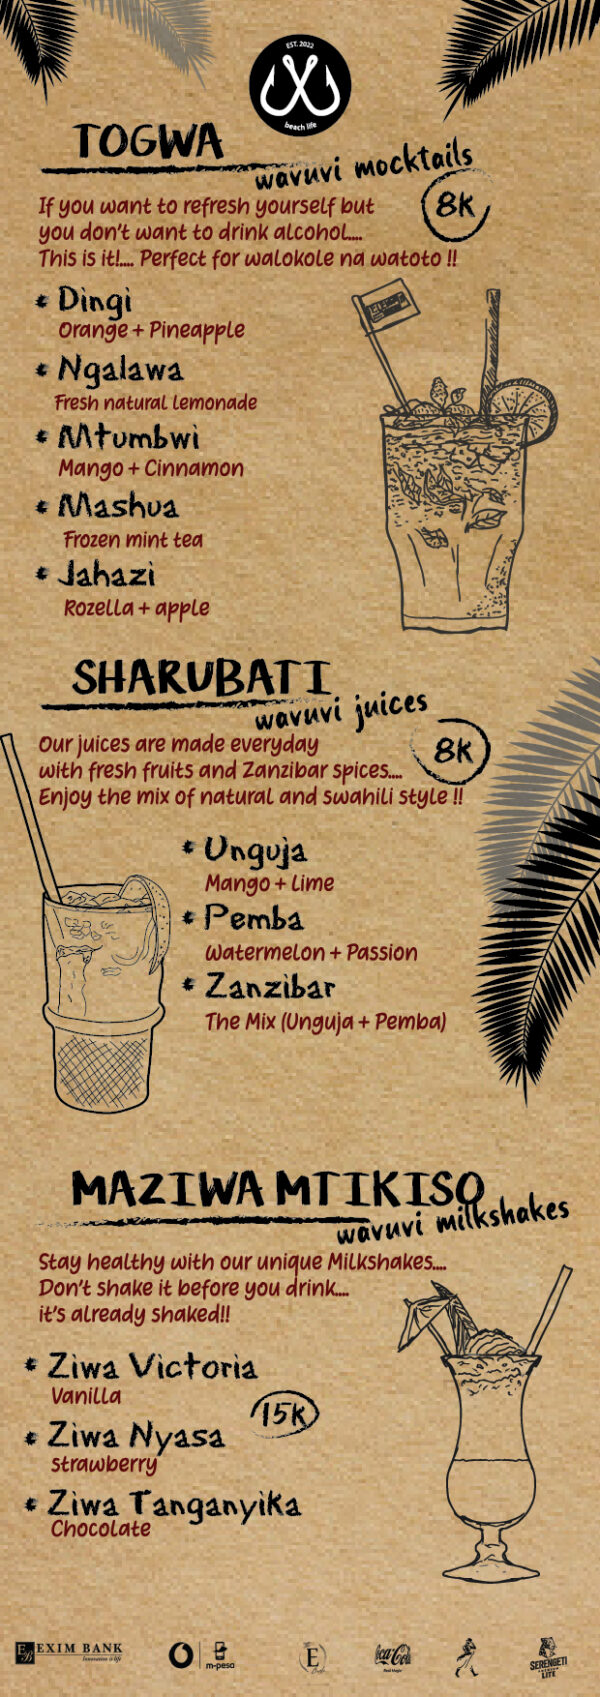 EST. 2022
beach life
TOGWA
wavuvi mocktails
8K
If you want to refresh yourself but
you don't want to drink alcohol....
This is it!.... Perfect for walokole na watoto !!
Dingi
Orange + Pineapple
Ngalawa
Fresh natural lemonade
Mtumbwi
Mango + Cinnamon
Mashua
Frozen mint tea
Jahazi
Rozella + apple
SHARUBATI
wavuvi juices
8K
Our juices are made everyday
with fresh fruits and Zanzibar spices....
Enjoy the mix of natural and swahili style !!
Unguja
Mango + Lime
Pemba
Watermelon + Passion
Zanzibar
The Mix (Unguja + Pemba)
MAZIWA MTIKISO
wavuvi milkshakes
Stay healthy with our unique Milkshakes....
Don't shake it before you drink....
it's already shaked!!
Ziwa Victoria
Vanilla
15K
Ziwa Nyasa
strawberry
Ziwa Tanganyika
Chocolate
EXIM BANK
Innovation is life
m-pesa
E
Coca-Cola
Real Magic
SERENGETI
LITE